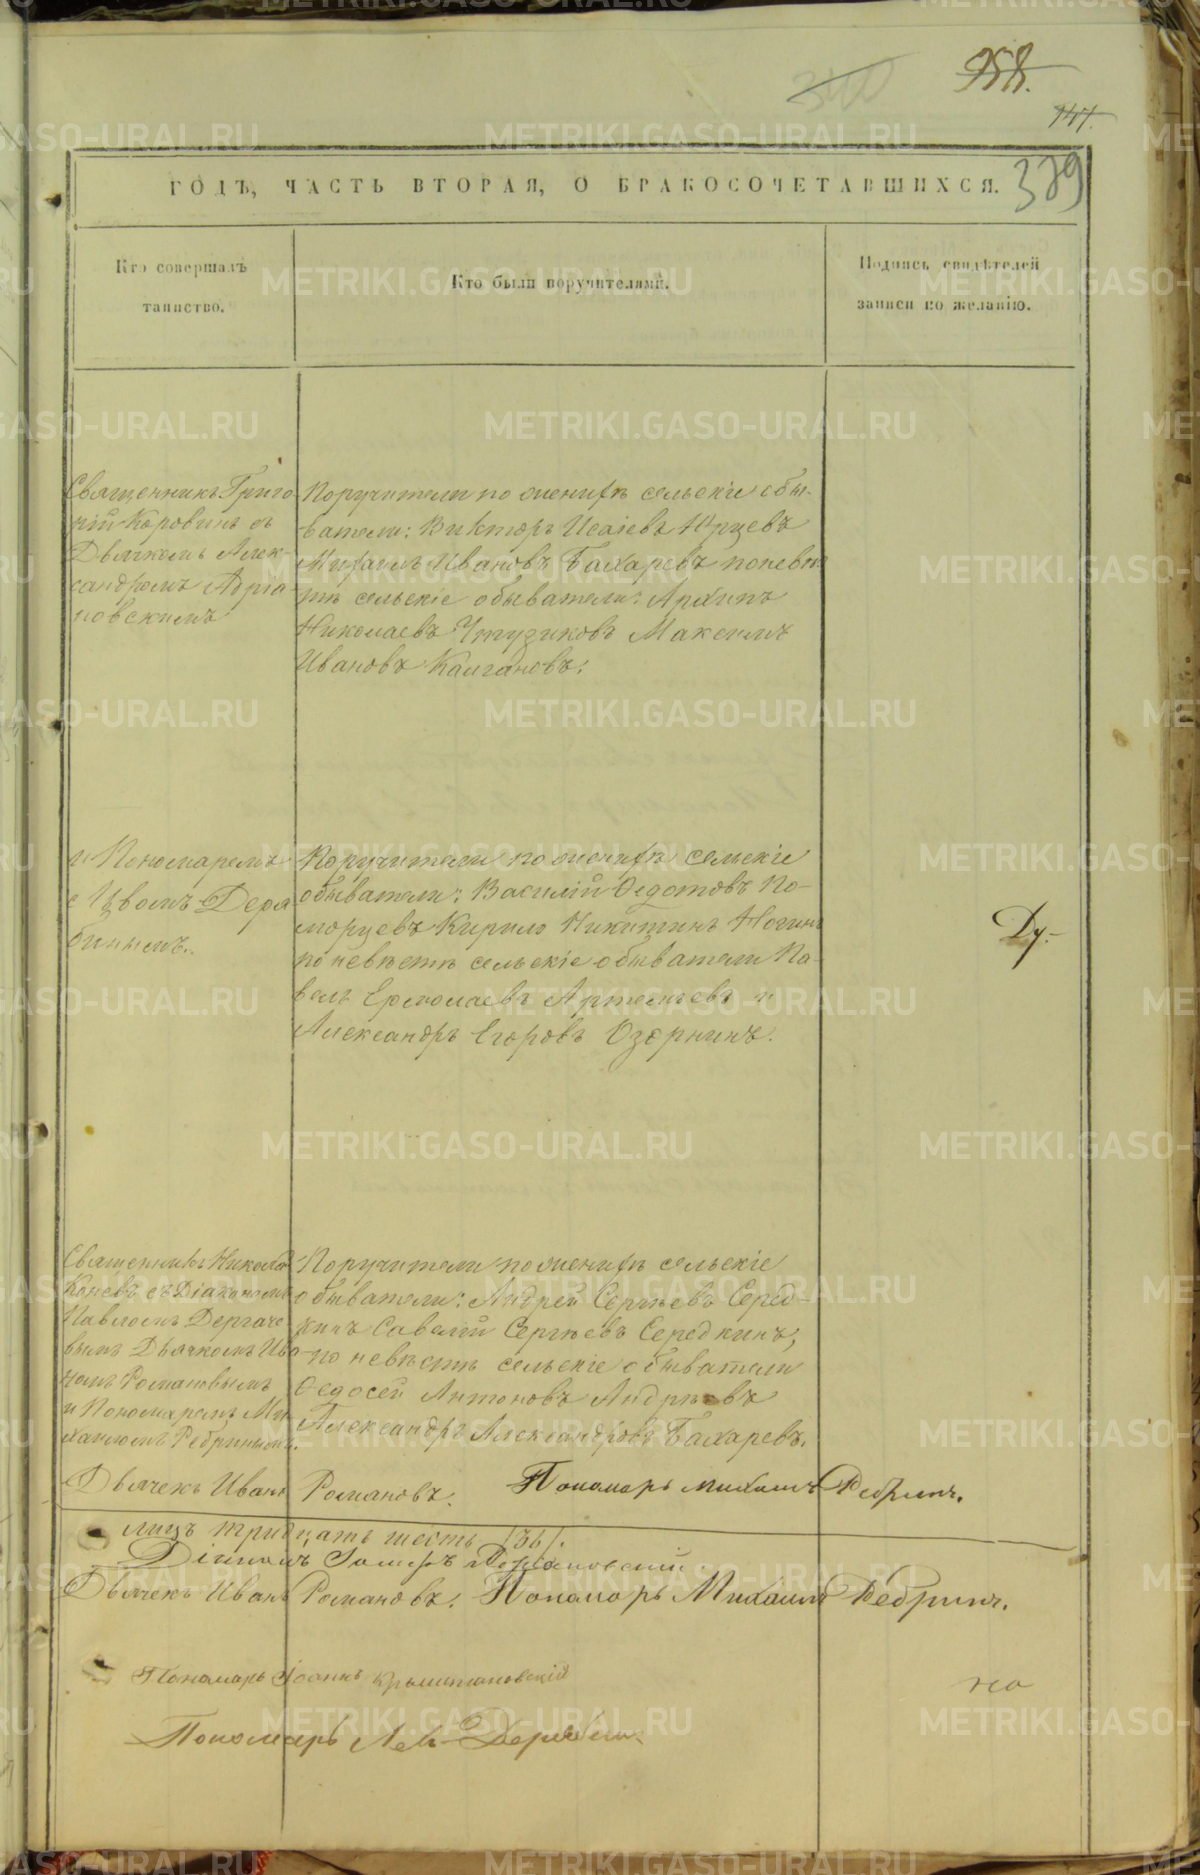 958.
747.
340
389
ГОДЪ, ЧАСТЬ ВТОРАЯ, О БРАКОСОЧЕТАВШИХСЯ.
Кто совершалъ
таинство.
Кто были поручителями.
Подпись свидѣтелей
записи по желанію.
Священникъ Григо
рій Коровинъ съ
Дьячкомъ Алек-
сандромъ Адріа
новскимъ
Поручители по женихѣ сельскіе обы-
ватели: Викторъ Исаіевъ Юрцевъ
Михаилъ Ивановъ Бахаревъ по невѣ
стѣ сельскіе обыватели: Архипъ
Николаевъ Максимъ
Ивановъ Калгановъ:
и Пономаремъ
Львомъ Деря
бинымъ.
Поручители по женихѣ сельскіе
обыватели: Василій Ѳедотовъ По-
морцевъ Кирило Никитинъ Ногинъ
по невѣстѣ сельскіе обыватели Па-
велъ Ермолаевъ Артемьевъ и
Александръ Егоровъ Озорнинъ.
Ду.-
Священникъ Николай
Коневъ съ Діакономъ
Павломъ Дергаче
вымъ Дьячкомъ Ива
номъ Романовымъ
и Пономаремъ Ми
хаиломъ Ребринымъ.
Поручители по женихѣ сельскіе
обыватели: Андрей Сергѣевъ Серед-
кинъ Савелій Сергѣевъ Середкинъ,
по невѣстѣ сельскіе обыватели
Ѳедосей Антоновъ Андрѣевъ
Александръ Александровъ Бахаревъ.
Дьячекъ Иванъ Романовъ. Пономарь Михаилъ Ребринъ.
лицъ тридцать шесть /36/.
Дьячекъ Иванъ Романовъ. Пономарь Михаилъ Ребринъ.
Пономарь Іоаннъ
Пономарь Левъ Дерябинъ.
METRIKI.GASO-URAL.RU